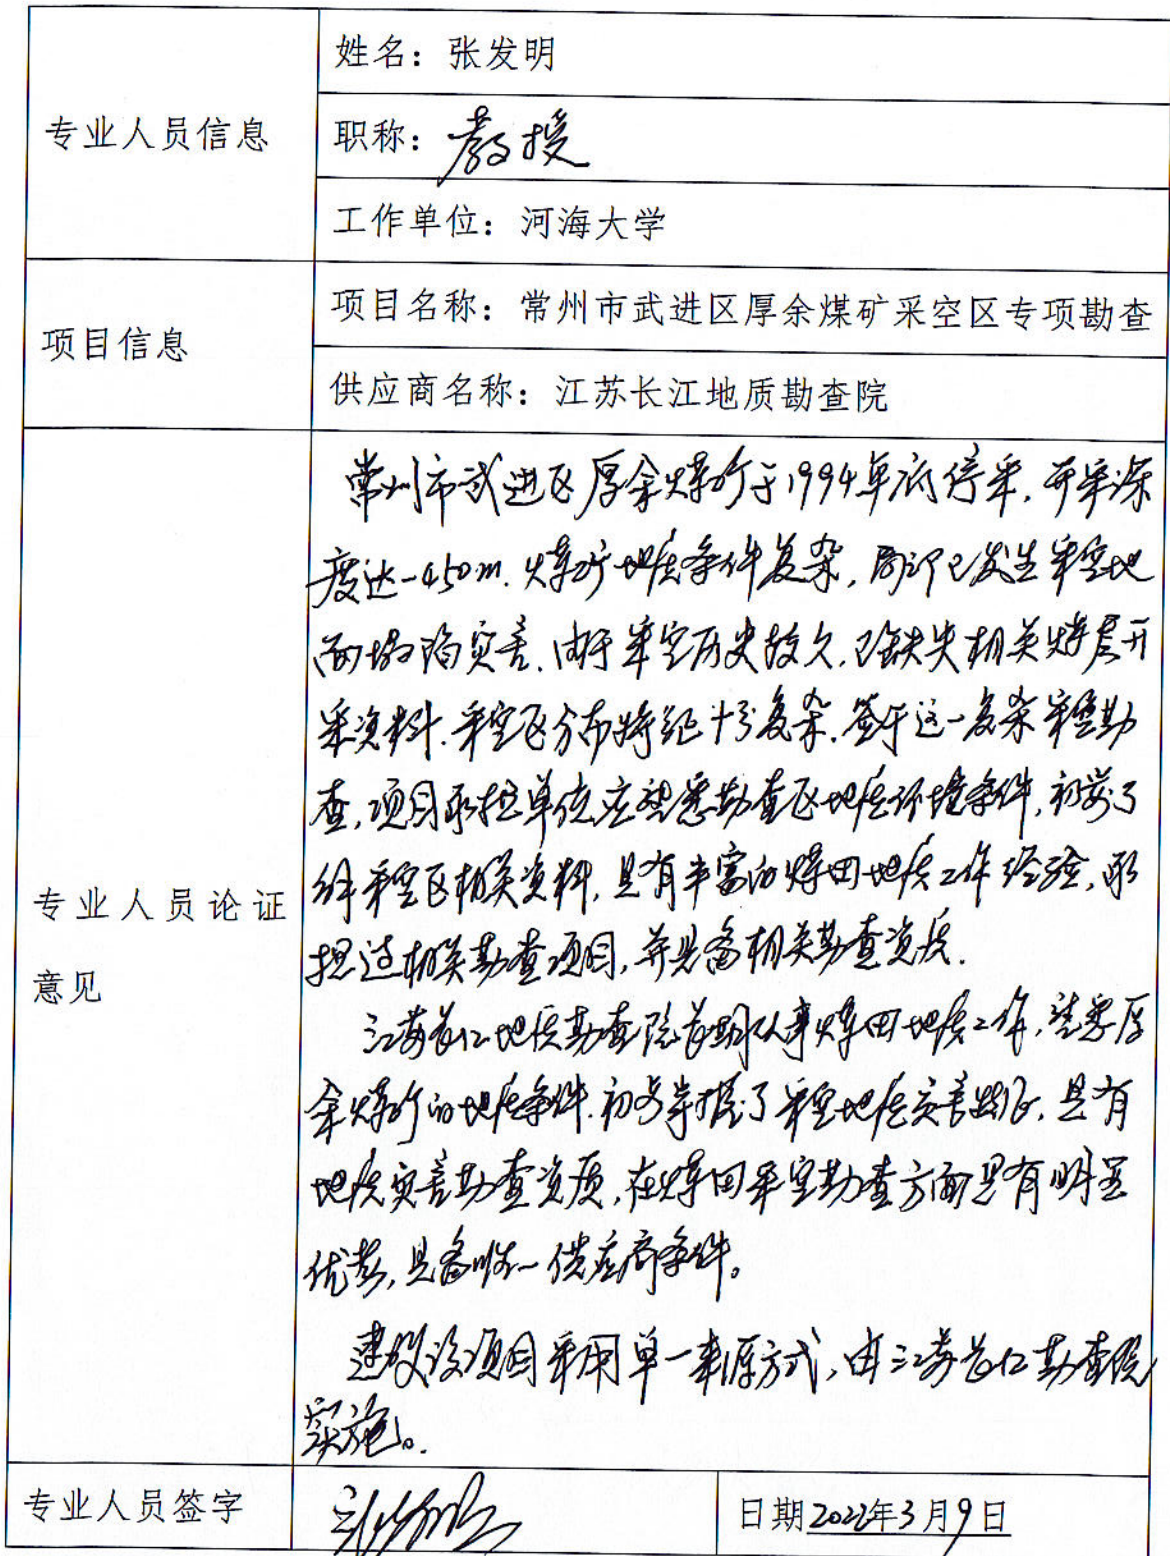 专业人员信息
姓名：张发明
职称：教授
工作单位：河海大学
项目信息
项目名称：常州市武进区厚余煤矿采空区专项勘查
供应商名称：江苏长江地质勘查院
专业人员论证
意见
常州市武进区厚余煤矿于1994年底停采，开采深
度达-450m.煤矿地质条件复杂，局部已发生采空地
面塌陷灾害.由于采空历史较久，已缺失相关煤层开
采资料.采空区分布特征十分复杂.鉴于这一复杂采空勘
查，项目承担单位应熟悉勘查区地质环境条件，初步了
解采空区相关资料，具有丰富的煤田地质工作经验，承
担过相关勘查项目，并具备相关勘查资质.
江苏长江地质勘查院长期从事煤田地质工作，熟悉厚
余煤矿的地质条件.初步掌握了采空地质灾害特征，具有
地质灾害勘查资质，在煤田采空勘查方面具有明显
优势，具备唯一供应商条件。
建议该项目采用单一来源方式，由江苏长江勘查院
实施。
专业人员签字
张发明
日期2022年3月9日